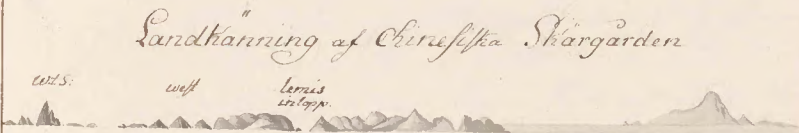 Landkänning af Chinesiska Skärgården
WTS:
west
lemis
inlopp.